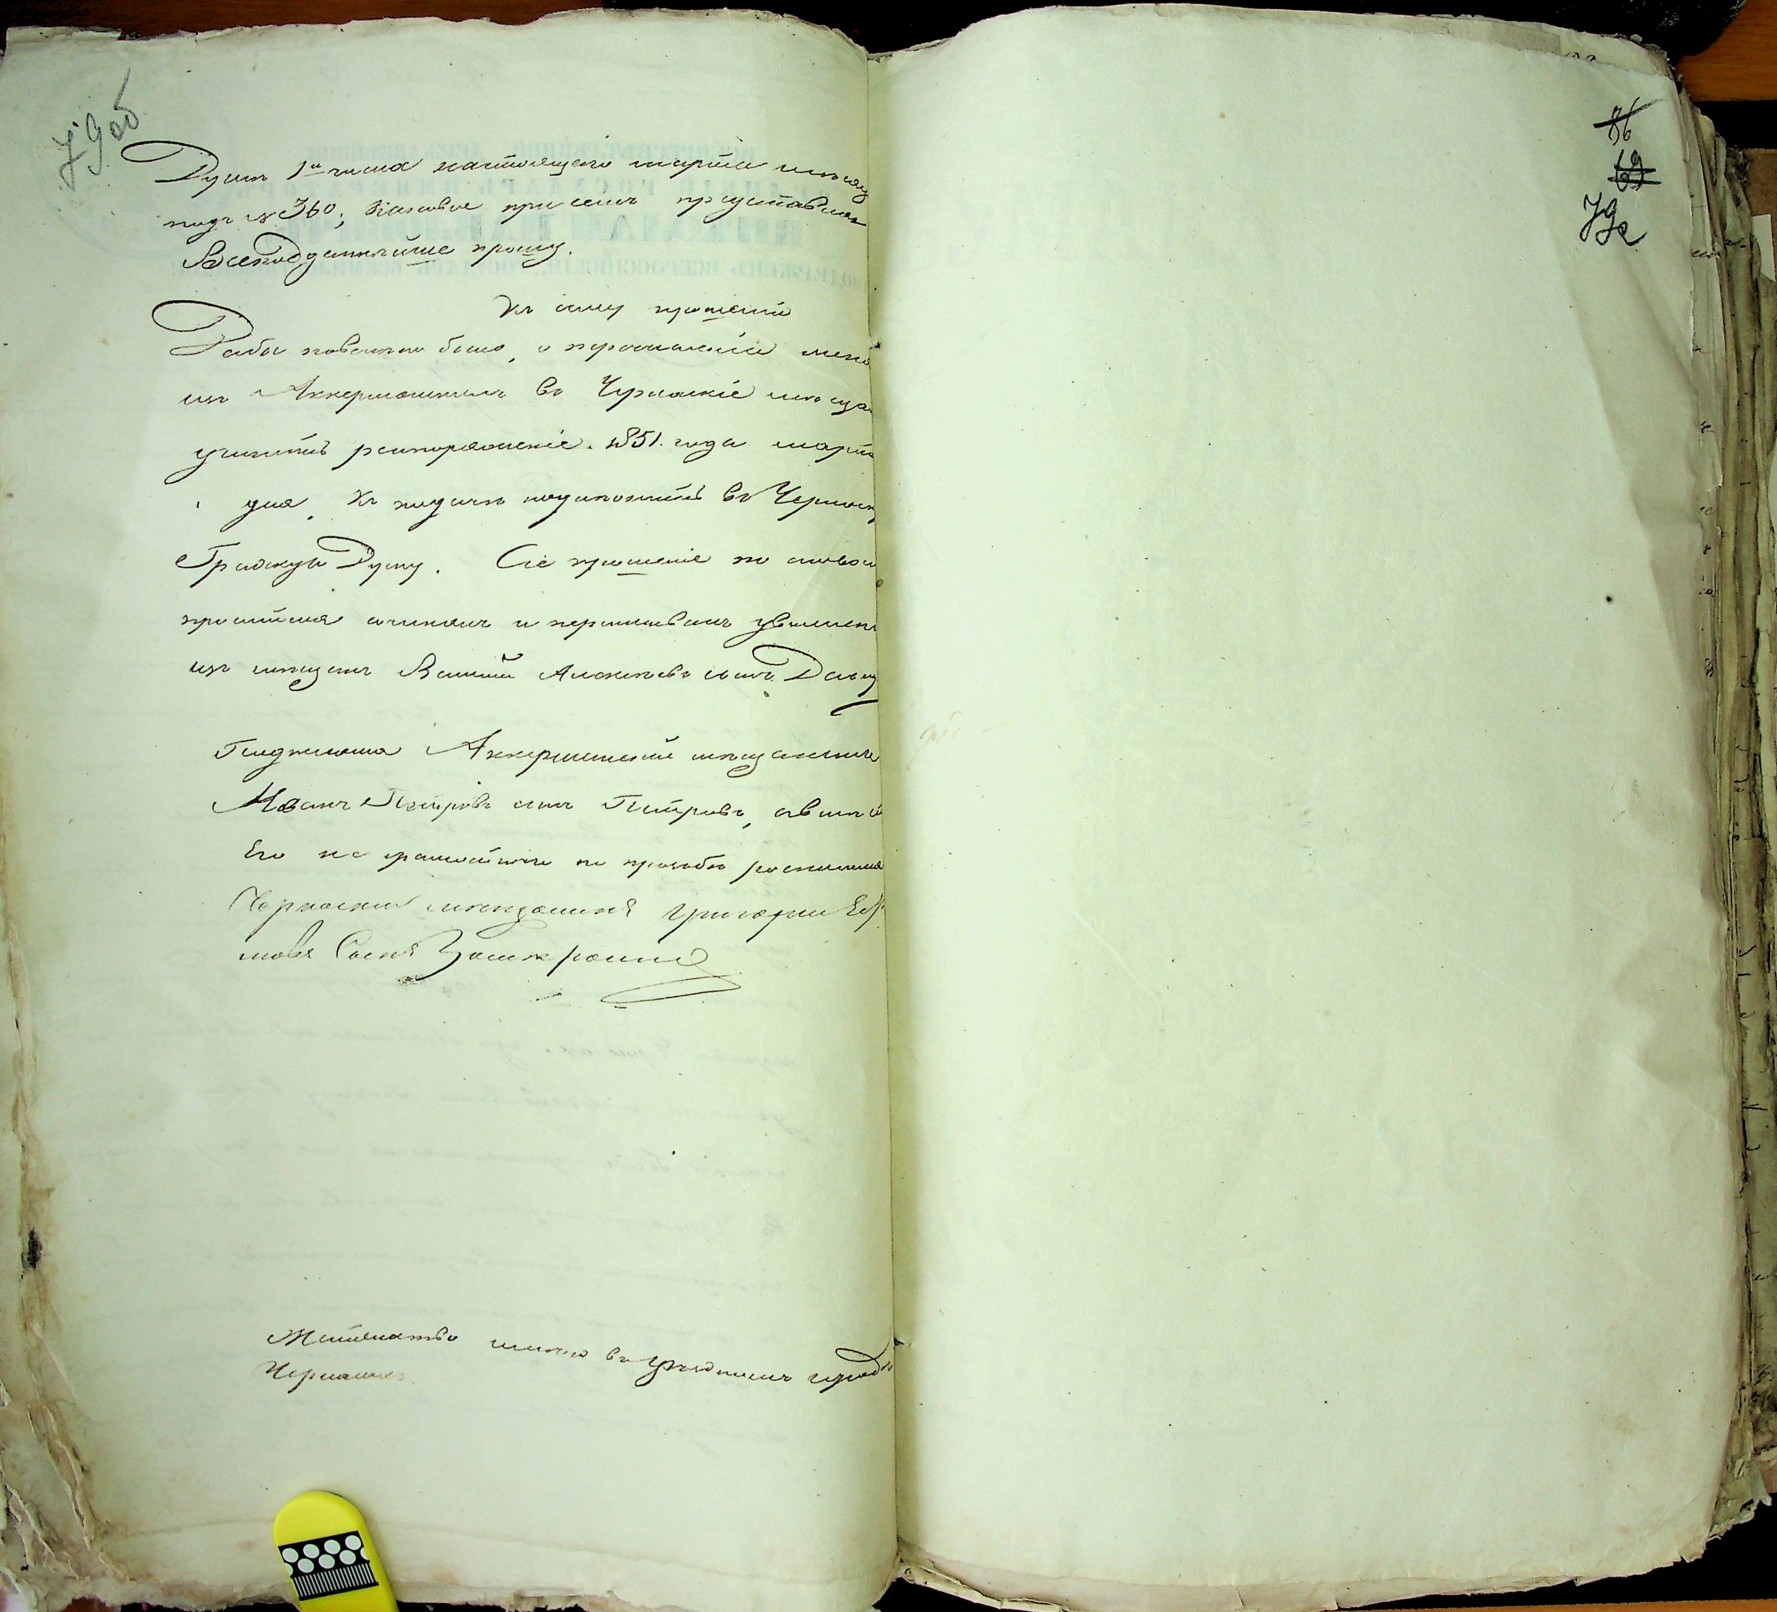 79об
Думы 1го числа настоящего марта месяц
подъ № 360, каковое при семъ представляя
Всеподданнейше прошу.
Къ сему прошенію
Дабы повелено было, о перечисленіи меня
изъ Аккерманскихъ въ Черкаскіе мещан
учинить распоряженіе. 1851. года марта
дня. Къ подачѣ надлежитъ въ Черкаск
Градскую Думу. Сіе прошеніе со словъ
просителя сочинялъ и переписывалъ уволен
изъ мещанъ Василій Алексеевъ сынъ
прошенію Аккерманскій мещанинъ
Иванъ Петровъ сынъ Петровъ, а вместо
Его не грамотного по прозьбе росписался
Черкаский мещанинъ Григорий
мовъ Сынъ
Жительство имею въ уездномъ городе
Черкасахъ.
86
69
79а